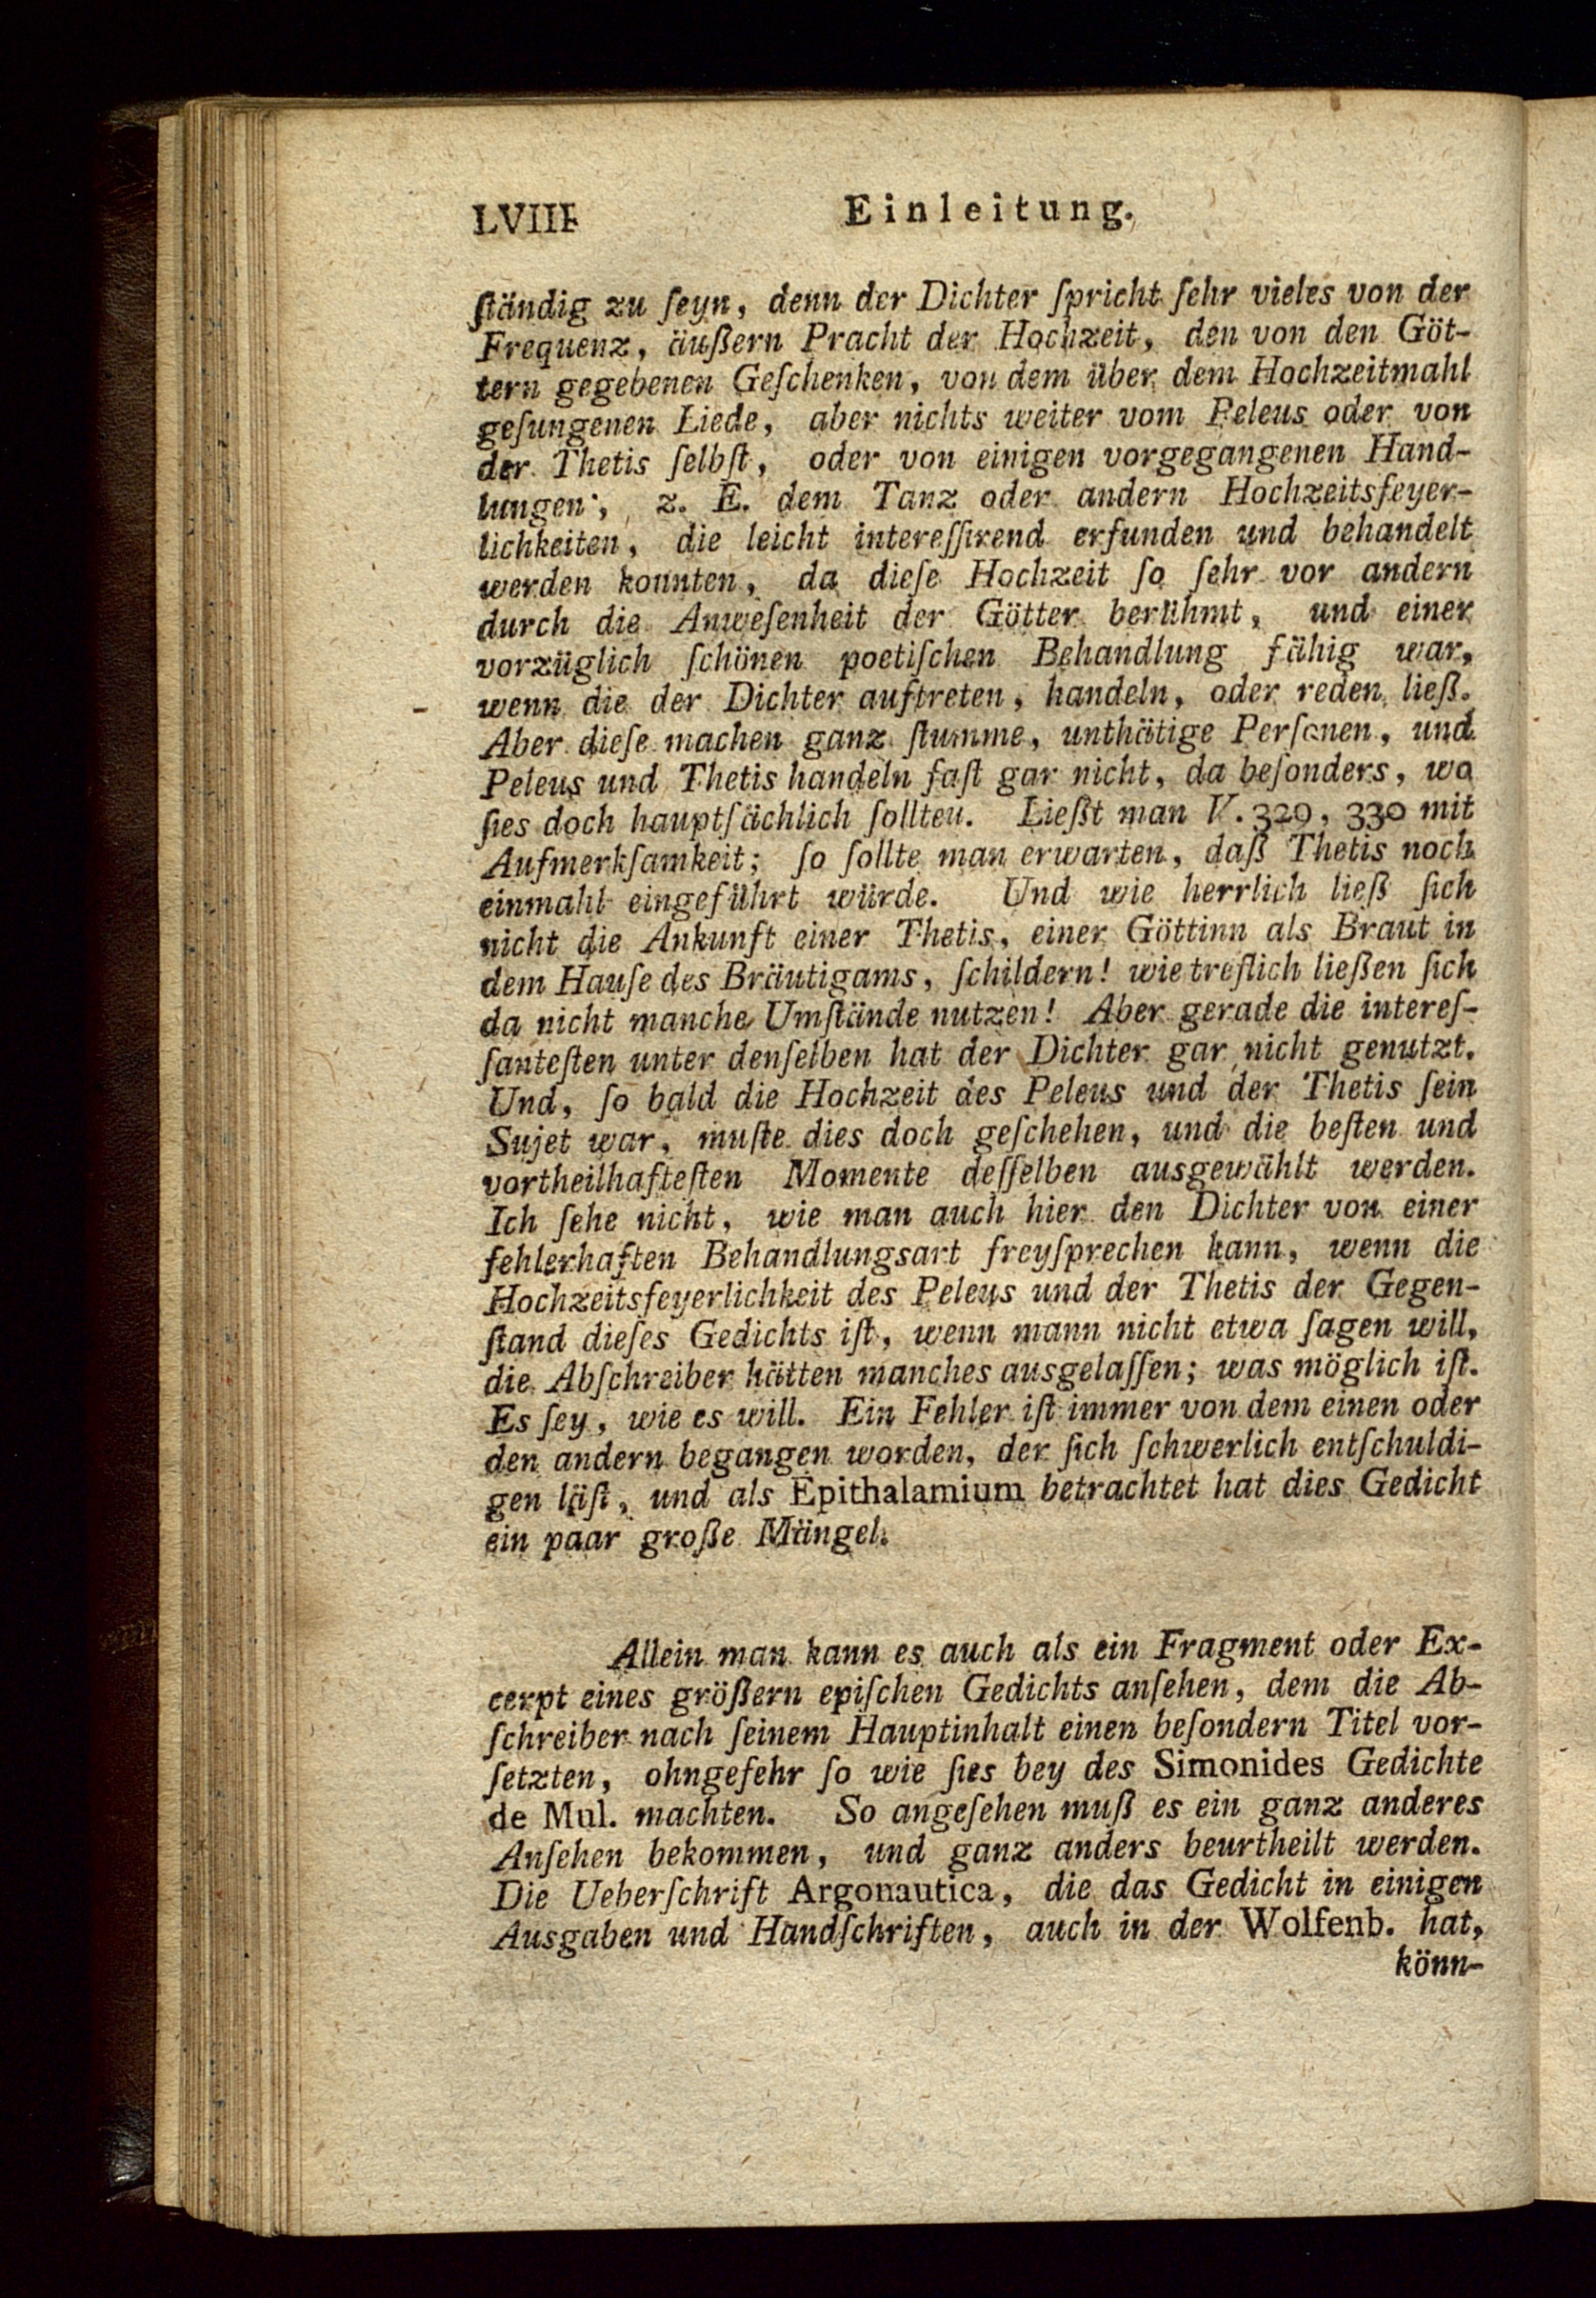 LVIII Einleitung.
ſtändig zu ſeyn, denn der Dichter ſpricht ſehr vieles von der
Frequenz, äußern Pracht der Hochzeit, den von den Göt-
tern gegebenen Geſchenken, von dem über dem Hochzeitmahl
geſungenen Liede, aber nichts weiter vom Peleus oder von
der Thetis ſelbſt, oder von einigen vorgegangenen Hand-
lungen, z. E. dem Tanz oder andern Hochzeitsfeyer-
lichkeiten, die leicht intereſſirend erfunden und behandelt
werden konnten, da dieſe Hochzeit ſo ſehr vor andern
durch die Anweſenheit der Götter berühmt, und einer
vorzüglich ſchönen poetiſchen Behandlung fähig war,
wenn die der Dichter auftreten, handeln, oder reden ließ.
Aber dieſe machen ganz ſtumme, unthätige Perſonen, und
Peleus und Thetis handeln faſt gar nicht, da beſonders, wo
ſies doch hauptſächlich ſollten. Ließt man V. 329, 330 mit
Aufmerkſamkeit; ſo ſollte man erwarten, daß Thetis noch
einmahl eingeführt würde. Und wie herrlich ließ ſich
nicht die Ankunft einer Thetis, einer Göttinn als Braut in
dem Hauſe des Bräutigams, ſchildern! wie treflich ließen ſich
da nicht manche Umſtände nutzen! Aber gerade die intereſ-
ſanteſten unter denſelben hat der Dichter gar nicht genutzt.
Und, ſo bald die Hochzeit des Peleus und der Thetis ſein
Sujet war, muſte dies doch geſchehen, und die beſten und
vortheilhafteſten Momente deſſelben ausgewählt werden.
Ich ſehe nicht, wie man auch hier den Dichter von einer
fehlerhaften Behandlungsart freyſprechen kann, wenn die
Hochzeitsfeyerlichkeit des Peleus und der Thetis der Gegen-
ſtand dieſes Gedichts iſt, wenn mann nicht etwa ſagen will,
die Abſchreiber hätten manches ausgelaſſen; was möglich iſt.
Es ſey, wie es will. Ein Fehler iſt immer von dem einen oder
den andern begangen worden, der ſich ſchwerlich entſchuldi-
gen läſt, und als Epithalamium betrachtet hat dies Gedicht
ein paar große Mängel.
Allein man kann es auch als ein Fragment oder Ex-
cerpt eines größern epiſchen Gedichts anſehen, dem die Ab-
ſchreiber nach ſeinem Hauptinhalt einen beſondern Titel vor-
ſetzten, ohngefehr ſo wie ſies bey des Simonides Gedichte
de Mul. machten. So angeſehen muß es ein ganz anderes
Anſehen bekommen, und ganz anders beurtheilt werden.
Die Ueberſchrift Argonautica, die das Gedicht in einigen
Ausgaben und Handſchriften, auch in der Wolfenb. hat,
könn-